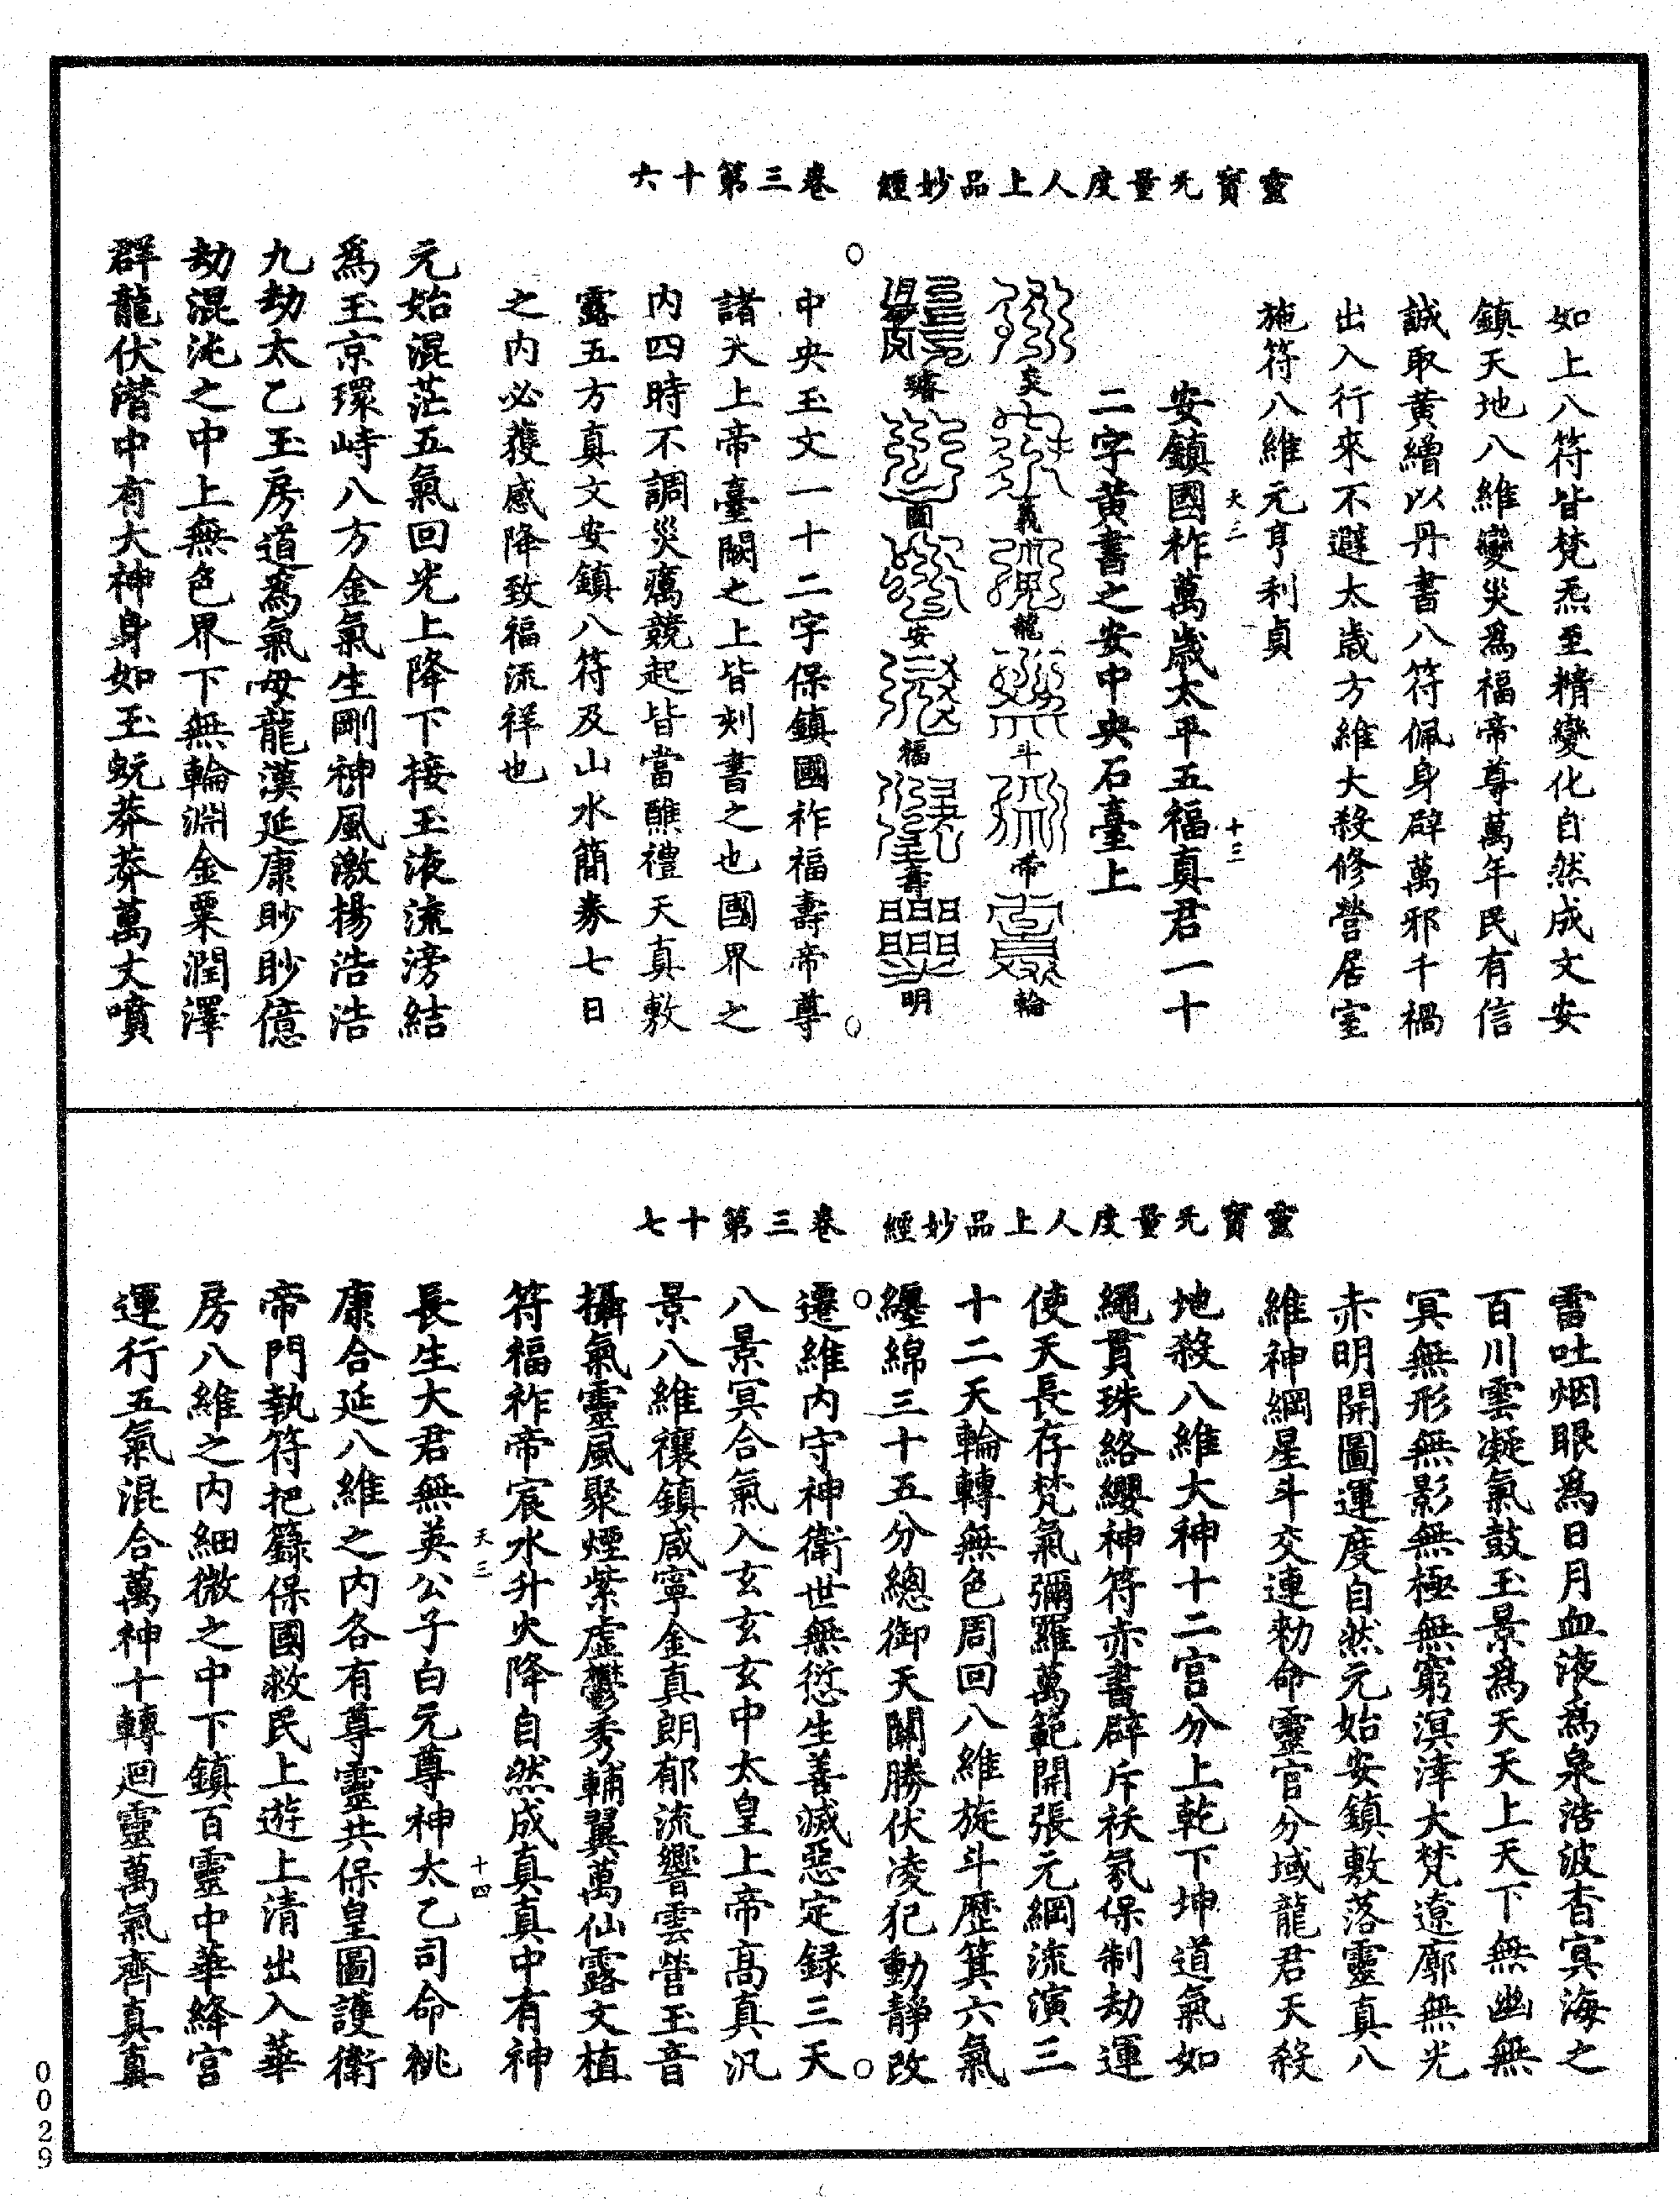 靈寶无量度人上品妙經　卷三第十六
如上八符皆梵炁至精變化自然成文安
鎮天地八維變災爲福帝尊萬年民有信
誠取黃繒以丹書八符佩身辟萬邪千禍
出入行來不避太歲方維大殺修營居室
施符八維元亨利貞
天三　十三
安鎮國祚萬歲太平五福真君一十
二字黃書之安中央石臺上
炎
義
龍
斗
帝
輪
璿
圖
安
福
壽
明
中央玉文一十二字保鎮國祚福壽帝尊
諸天上帝臺闕之上皆刻書之也國界之
内四時不調災癘競起皆當醮禮天真敷
露五方真文安鎮八符及山水簡券七日
之内必獲感降致福流祥也
元始混茫五氣回光上降下接玉液流滂結
爲玉京環峙八方金氣生剛神風激揚浩浩
九劫太乙玉房道爲氣母龍漢延康眇眇億
劫混沌之中上無色界下無輪淵金粟潤澤
群龍伏潛中有大神身如玉蚖莽莽萬丈噴
靈寶无量度人上品妙經　卷三第十七
雷吐烟眼爲日月血液爲泉浩波杳冥海之
百川雲凝氣鼓玉景爲天天上天下無幽無
冥無形無影無極無窮溟涬大梵遼廓無光
赤明開圖運度自然元始安鎮敷落靈真八
維神綱星斗交連勑命靈官分域龍君天殺
地殺八維大神十二宫分上乾下坤道氣如
繩貫珠絡纓神符赤書辟斥袄氛保制劫運
使天長存梵氣彌羅萬範開張元綱流演三
十二天輪轉無色周回八維旋斗歷箕六氣
纏綿三十五分總御天關勝伏凌犯動靜改
遷維内守神衛世無愆生善滅惡定録三天
八景冥合氣入玄玄玄中太皇上帝髙真汎
景八維禳鎮咸寧金真朗郁流響雲營玉音
攝氣靈風聚煙紫虛鬱秀輔翼萬仙露文植
符福祚帝宸水升火降自然成真真中有神
天三　十四
長生大君無英公子白元尊神太乙司命桃
康合延八維之内各有尊靈共保皇圖護衛
帝門執符把籙保國救民上遊上清出入華
房八維之内細微之中下鎮百靈中華絳宫
運行五氣混合萬神十轉迴靈萬氣齊真真
0029